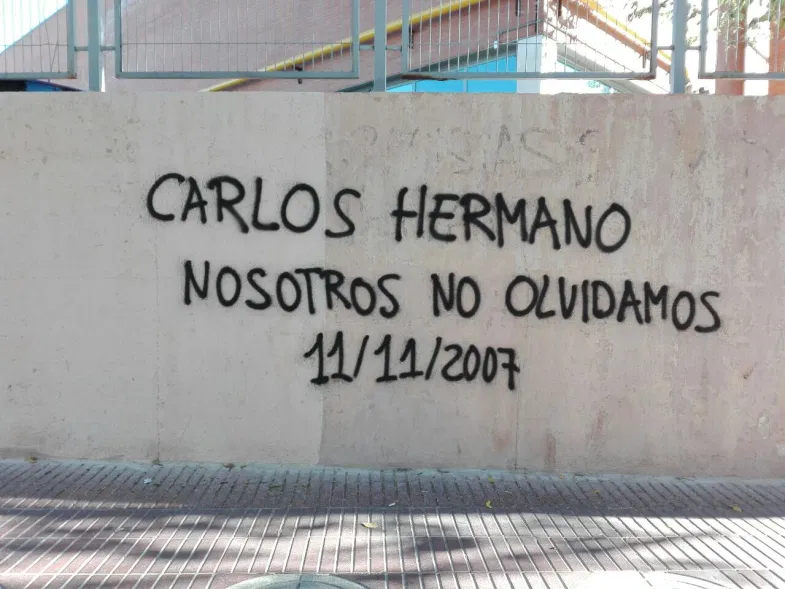 CARLOS HERMANO
NOSOTROS NO OLVIDAMOS
11/11/2007